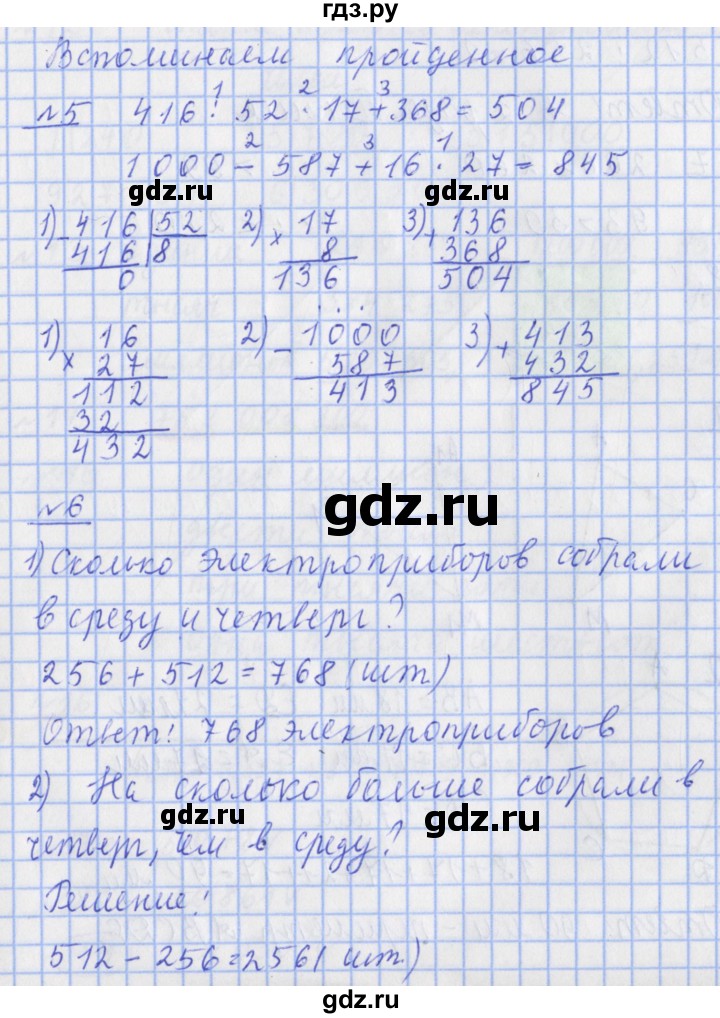 гдз.ру
Вспоминаем пройденное
№5 416 : 52 · 17 + 368 = 504
1 2 3
1000 - 587 + 16 · 27 = 845
2 3 1
gdz.ru gdz.ru
1) - 416 | 52 2) × 17 3) + 136
416 | 8 8 368
0 136 504
1) × 16 2) - 1000 3) + 413
27 587 432
112 413 845
32
432
№6
gdz.ru
1) Сколько электроприборов собрали
в среду и четверг?
256 + 512 = 768 (шт)
Ответ: 768 электроприборов
2) На сколько больше собрали в
gdz.ru gdz.ru
четверг, чем в среду?
Решение:
512 - 256 = 256 (шт.)
gdz.ru